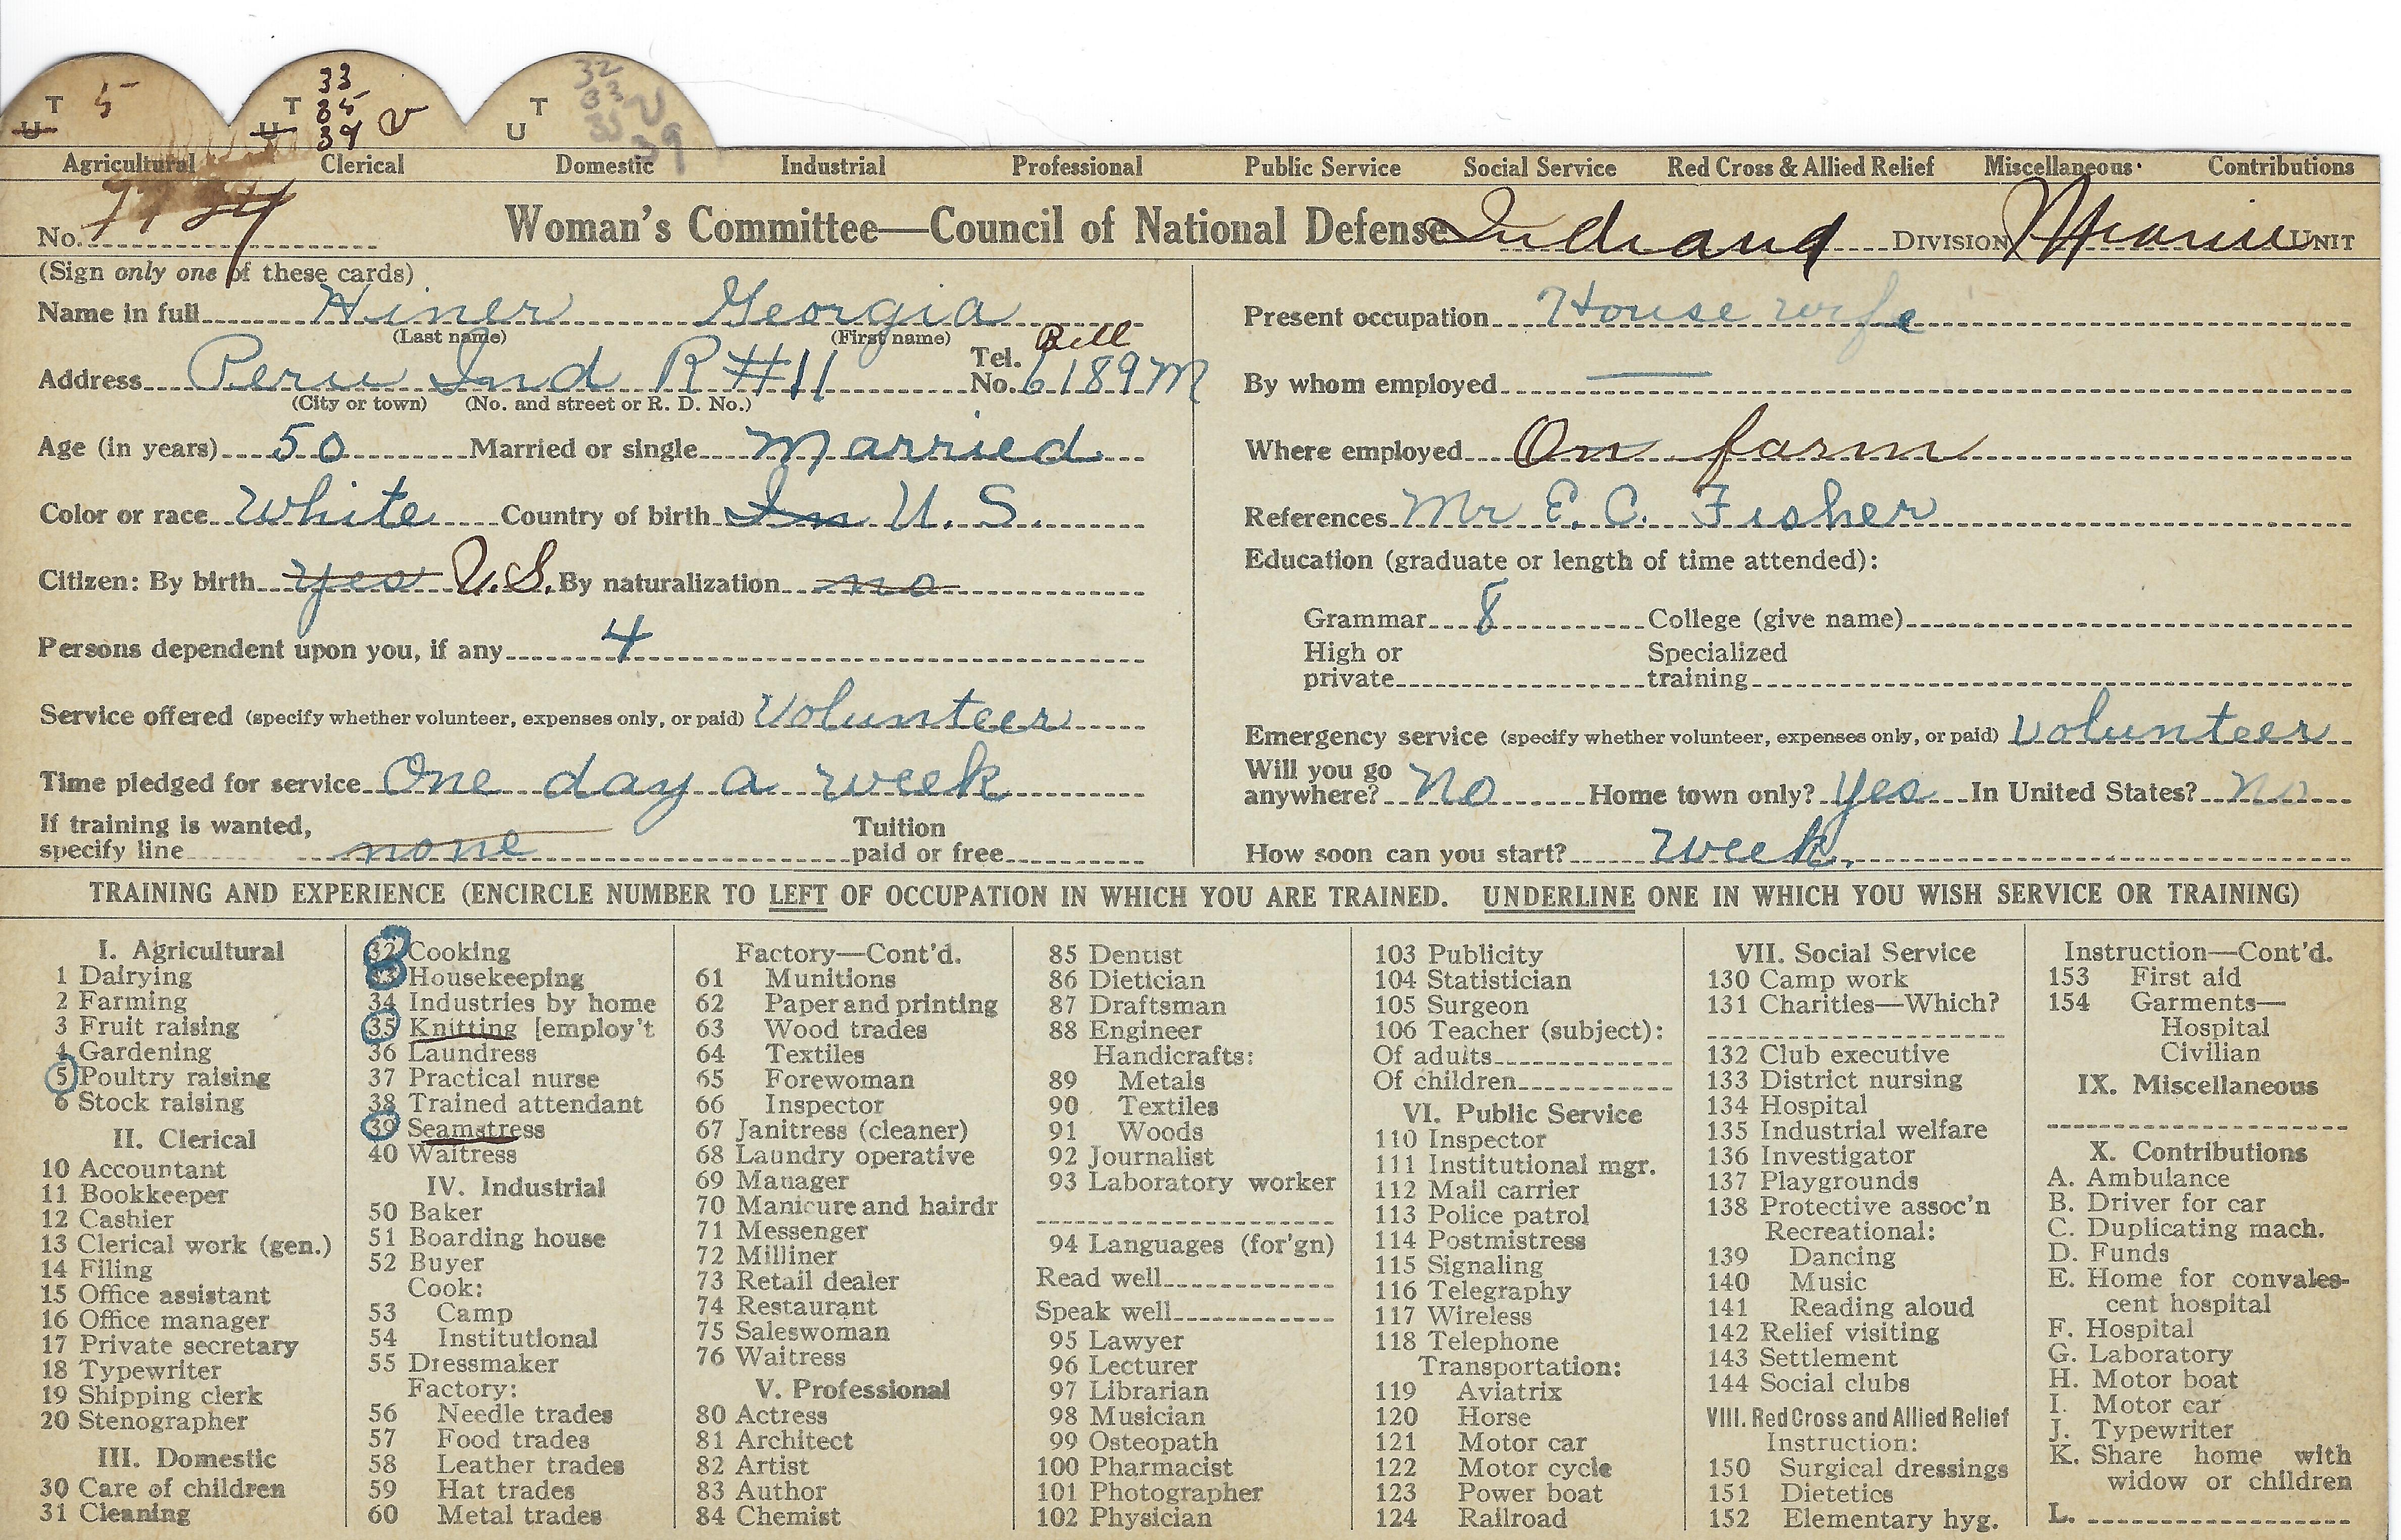 T 5 T 33 T 32
U U 35 v U 33 v
39 35
39
Agricultural Clerical Domestic Industrial Professional Public Service Social Service Red Cross & Allied Relief Miscellaneous Contributions
No. Woman's Committee—Council of National Defense Indiana DIVISION UNIT
(Sign only one of these cards)
Name in full Hiner Georgia
(Last name) (First name)
Address Peru Ind R #11 Tel. No. Bell 6189M
(City or town) (No. and street or R. D. No.)
Age (in years) 50 Married or single Married
Color or race White Country of birth In U. S.
Citizen: By birth yes U.S. By naturalization no
Persons dependent upon you, if any 4
Service offered (specify whether volunteer, expenses only, or paid) Volunteer
Time pledged for service One day a week
If training is wanted, specify line none Tuition paid or free
Present occupation House wife
By whom employed —
Where employed On farm
References Mr E. C. Fisher
Education (graduate or length of time attended):
Grammar 8 College (give name)
High or private Specialized training
Emergency service (specify whether volunteer, expenses only, or paid) volunteer
Will you go anywhere? No Home town only? yes In United States? No
How soon can you start? Week.
TRAINING AND EXPERIENCE (ENCIRCLE NUMBER TO LEFT OF OCCUPATION IN WHICH YOU ARE TRAINED. UNDERLINE ONE IN WHICH YOU WISH SERVICE OR TRAINING)
I. Agricultural
1 Dairying
2 Farming
3 Fruit raising
4 Gardening
5 Poultry raising
6 Stock raising
II. Clerical
10 Accountant
11 Bookkeeper
12 Cashier
13 Clerical work (gen.)
14 Filing
15 Office assistant
16 Office manager
17 Private secretary
18 Typewriter
19 Shipping clerk
20 Stenographer
III. Domestic
30 Care of children
31 Cleaning
32 Cooking
33 Housekeeping
34 Industries by home
35 Knitting [employ't
36 Laundress
37 Practical nurse
38 Trained attendant
39 Seamstress
40 Waitress
IV. Industrial
50 Baker
51 Boarding house
52 Buyer
Cook:
53 Camp
54 Institutional
55 Dressmaker
Factory:
56 Needle trades
57 Food trades
58 Leather trades
59 Hat trades
60 Metal trades
Factory—Cont'd.
61 Munitions
62 Paper and printing
63 Wood trades
64 Textiles
65 Forewoman
66 Inspector
67 Janitress (cleaner)
68 Laundry operative
69 Manager
70 Manicure and hairdr
71 Messenger
72 Milliner
73 Retail dealer
74 Restaurant
75 Saleswoman
76 Waitress
V. Professional
80 Actress
81 Architect
82 Artist
83 Author
84 Chemist
85 Dentist
86 Dietician
87 Draftsman
88 Engineer
Handicrafts:
89 Metals
90 Textiles
91 Woods
92 Journalist
93 Laboratory worker
94 Languages (for'gn)
Read well
Speak well
95 Lawyer
96 Lecturer
97 Librarian
98 Musician
99 Osteopath
100 Pharmacist
101 Photographer
102 Physician
103 Publicity
104 Statistician
105 Surgeon
106 Teacher (subject):
Of adults
Of children
VI. Public Service
110 Inspector
111 Institutional mgr.
112 Mail carrier
113 Police patrol
114 Postmistress
115 Signaling
116 Telegraphy
117 Wireless
118 Telephone
Transportation:
119 Aviatrix
120 Horse
121 Motor car
122 Motor cycle
123 Power boat
124 Railroad
VII. Social Service
130 Camp work
131 Charities—Which?
132 Club executive
133 District nursing
134 Hospital
135 Industrial welfare
136 Investigator
137 Playgrounds
138 Protective assoc'n
Recreational:
139 Dancing
140 Music
141 Reading aloud
142 Relief visiting
143 Settlement
144 Social clubs
VIII. Red Cross and Allied Relief
Instruction:
150 Surgical dressings
151 Dietetics
152 Elementary hyg.
Instruction—Cont'd.
153 First aid
154 Garments—
Hospital
Civilian
IX. Miscellaneous
X. Contributions
A. Ambulance
B. Driver for car
C. Duplicating mach.
D. Funds
E. Home for convales-
cent hospital
F. Hospital
G. Laboratory
H. Motor boat
I. Motor car
J. Typewriter
K. Share home with
widow or children
L.